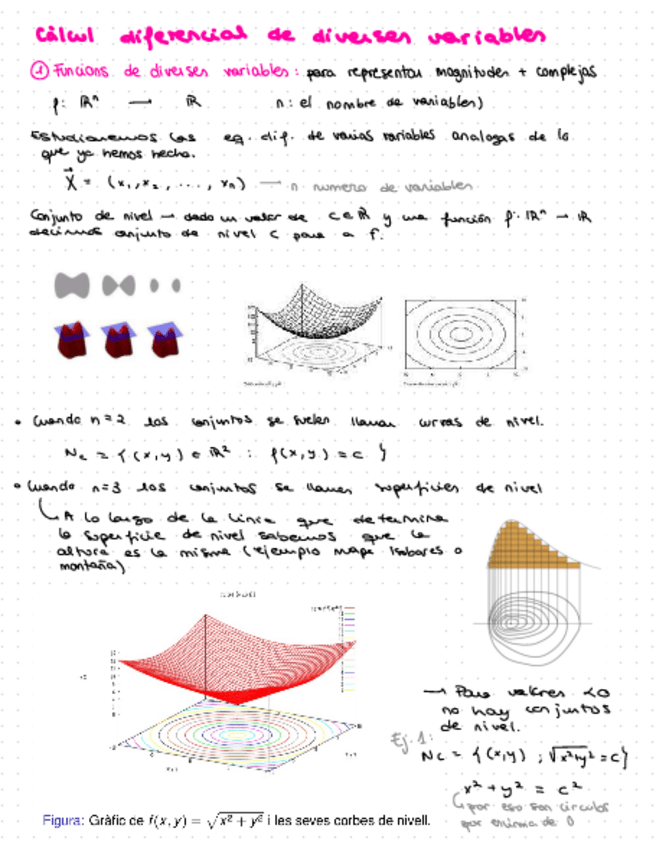 Càlcul diferencial de diverses variables
① Funcions de diverses variables: para representar magnitudes + complejas
f: ℝⁿ — ℝ n: el nombre de variables)
Estudiaremos las eq. dif. de varias variables analogas de lo
que ya hemos hecho.
X⃗ = (x₁, x₂, ..., xₙ) — n numero de variables
Conjunto de nivel → dado un valor de c ∈ ℝ y una función f: ℝⁿ → ℝ
decimos conjunto de nivel c para a f.
• Cuando n=2 los conjuntos se suelen llamar curvas de nivel.
N_c = {(x,y) ∈ ℝ² : f(x,y) = c }
• Cuando n=3 los conjuntos se llaman superficies de nivel
A lo largo de la linea que determina
la superficie de nivel sabemos que la
altura es la misma (ejemplo mapa isobares o
montaña)
→ Para valores <0
no hay conjuntos
de nivel.
Ej. 1:
N_c = {(x,y) ; √x²+y² = c}
x² + y² = c²
por eso son circulos
por encima de 0
Figura: Gràfic de f(x, y) = √x² + y² i les seves corbes de nivell.